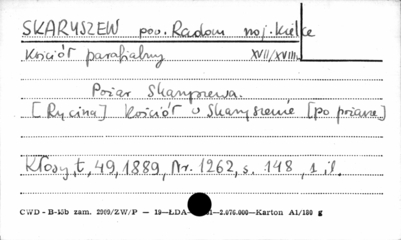 SKARYSZEW pow. Radom woj. Kielce
Kościół parafialny XVII/XVIII w.
Pożar Skaryszewa.
[Rycina] Kościół w Skaryszewie [po pożarze]
Kłosy, t. 49, 1889, Nr. 1262, s. 148, 1 il.
CWD - B-15b zam. 2909/ZW/P — 19—ŁDA— —2.076.000—Karton A1/180 g